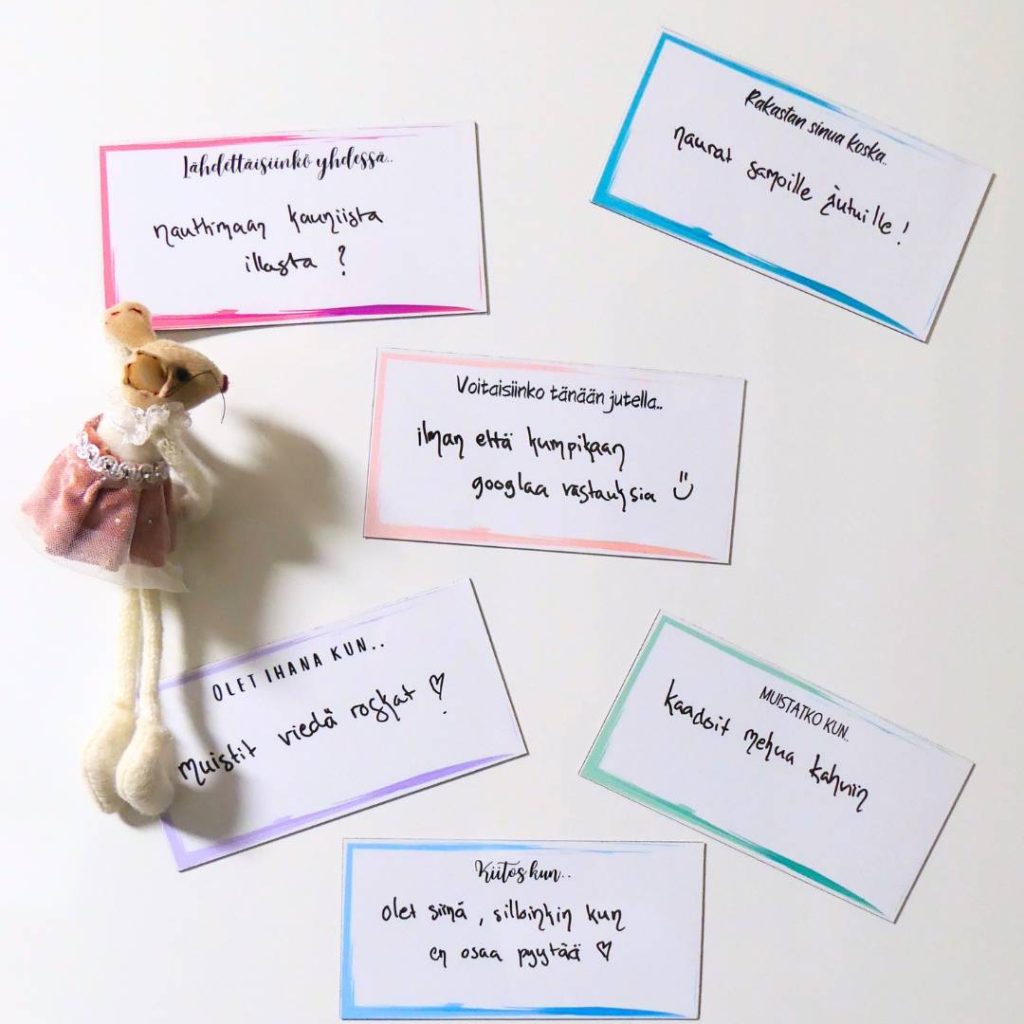 Lähdettäisiinkö yhdessä..
nauttimaan kauniista
illasta ?
Rakastan sinua koska..
naurat samoille jutuille !
Voitaisiinko tänään jutella..
ilman että kumpikaan
googlaa vastauksia
OLET IHANA KUN..
muistit viedä roskat ♡
MUISTATKO KUN..
kaadoit mehua kahviin
Kiitos kun..
olet siinä , silloinkin kun
en osaa pyytää ♡